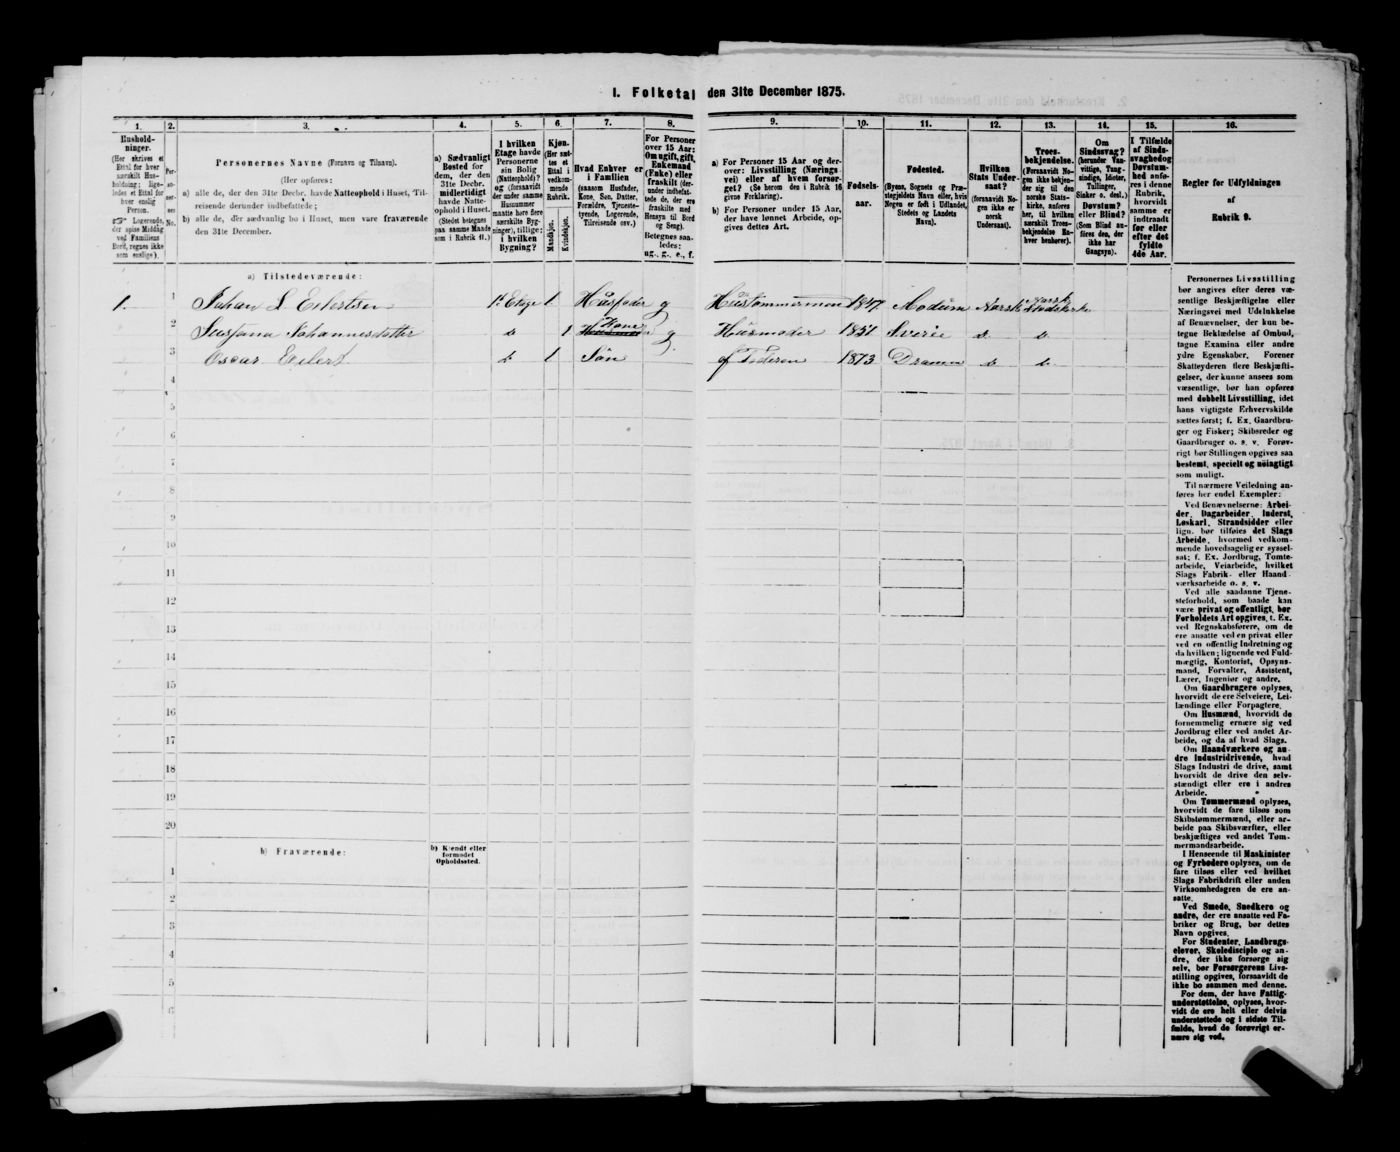 1. Folketal den 31te December 1875.
1. 2. 3. 4. 5. 6. 7. 8. 9. 10. 11. 12. 13. 14. 15. 16.
Hushold-
ninger.
(Her skrives et
Ettal for hver
særskilt Hus-
holdning; lige-
ledes et Ettal for
hver enslig
Person.
Logerende,
der spise Middag
ved Familiens
Bord, regnes ikke
som enslige).
Per-
so-
ner-
nes
No.
Personernes Navne (Fornavn og Tilnavn).
(Her opføres:
a) alle de, der den 31te Decbr. havde Natteophold i Huset, Til-
reisende derunder indbefattede;
b) alle de, der sædvanlig bo i Huset, men vare fraværende
den 31te December.
a) Sædvanligt
Bosted for
dem, der den
31te Decbr.
midlertidigt
havde Natte-
ophold i Huset.
(Stedet betegnes
paa samme Maade
som i Rubrik 11.)
I hvilken
Etage havde
Personerne
sin Bolig
(Natteophold)?
og (forsaavidt
der under samme
Husnummer
maatte høre flere
særskilte Byg-
ninger), tillige:
i hvilken
Bygning?
Kjøn.
(Her sæt-
tes et
Ettal i
vedkom-
mende
Rubrik.
Mandkjøn.
Kvindekjøn.
Hvad Enhver er
i Familien
(saasom Husfader,
Kone, Søn, Datter,
Forældre, Tjeneste-
tyende, Logerende,
Tilreisende osv.)
For Personer
over 15 Aar:
Om ugift, gift,
Enkemand
(Enke) eller
fraskilt (der-
under indbefat-
tede de, der ere
fraskilte med
Hensyn til Bord
og Seng).
Betegnes saa-
ledes:
ug., g., e., f.
a) For Personer 15 Aar og der-
over: Livsstilling (Nærings-
vei) eller af hvem forsør-
get? (Se herom den i Rubrik 16
givne Forklaring).
b) For Personer under 15 Aar,
der have lønnet Arbeide, op-
gives dettes Art.
Fødsels-
aar.
Fødested.
(Byens, Sognets og Præ-
stegjeldets Navn eller, hvis
Nogen er født i Udlandet,
Stedets og Landets
Navn).
Hvilken
Stats Under-
saat?
(forsaavidt No-
gen ikke er
norsk
Undersaat).
Troes-
bekjendelse.
(Forsaavidt No-
gen ikke bekjen-
der sig til den
norske Stats-
kirke, anføres
her, til hvilken
særskilt Troes-
bekjendelse En-
hver henhører).
Om
Sindssvag?
(herunder Van-
vittige, Tung-
sindige, Idioter,
Tullinger,
Sinker o. desl.)
Døvstum?
eller Blind?
(Som Blind an-
føres den, der
ikke har
Gangsyn).
I Tilfælde
af Sinds-
svaghed og
Døvstum-
hed anfø-
res i denne
Rubrik,
hvorvidt
samme er
indtraadt
før eller
efter det
fyldte
4de Aar.
Regler for Udfyldningen
af
Rubrik 9.
a) Tilstedeværende:
1. 1 Johan L Eilertsen 1ste Etage 1 Husfader g Hustømmerman 1847 Modum Norsk Norsk Statskirke
2 Susfana Johannesdatter do 1 Kone g Husmoder 1851 Sverie do do
3 Oscar Eilert do 1 Søn af Foderen 1873 Dramen do do
4
5
6
7
8
9
10
11
12
13
14
15
16
17
18
19
20
b) Fraværende: b) Kjendt eller
formodet
Opholdssted.
1
2
3
4
5
6
Personernes Livsstilling
bør angives efter deres væ-
sentlige Beskjæftigelse eller
Næringsvei med Udelukkelse
af Benævnelser, der kun be-
tegne Beklædelse af Ombud,
tagne Examina eller andre
ydre Egenskaber. Forener
Skatteyderen flere Beskjæfti-
gelser, der kunne ansees som
væsentlige, bør han opføres
med dobbelt Livsstilling, idet
hans vigtigste Erhvervskilde
sættes først; f. Ex. Gaardbru-
ger og Fisker; Skibsreder og
Gaardbruger o. s. v. Forøv-
rigt bør Stillingen opgives saa
bestemt, specielt og nøiagtigt
som muligt.
Til nærmere Veiledning an-
føres her endel Exempler:
Ved Benævnelserne: Arbei-
der, Dagarbeider, Inderst,
Løskarl, Strandsidder eller
lign. bør tilføies det Slags
Arbeide, hvormed vedkom-
mende hovedsagelig er syssel-
sat; f. Ex. Jordbrug, Tomte-
arbeide, Veiarbeide, hvilket
Slags Fabrik- eller Haand-
værksarbeide o. s. v.
Ved alle saadanne Tjene-
steforhold, som baade kan
være privat og offentligt, bør
Forholdets Art opgives, t. Ex.
ved Regnskabsførere, om de
ere ansatte ved en privat eller
ved en offentlig Indretning og
da hvilken; lignende ved Fuld-
mægtig, Kontorist, Opsyns-
mand, Forvalter, Assistent,
Lærer, Ingeniør og andre.
Om Gaardbrugere oplyses,
hvorvidt de ere Selveiere, Lei-
lændinge eller Forpagtere.
Om Husmænd, hvorvidt de
fornemmelig ernære sig ved
Jordbrug eller ved andet Ar-
beide, og da af hvad Slags.
Om Haandværkere og an-
dre Industridrivende, hvad
Slags Industri de drive, samt
hvorvidt de drive den selv-
stændigt eller ere i andres
Arbeide.
Om Tømmermænd oplyses,
hvorvidt de fare tilsøs som
Skibstømmermænd, eller ar-
beide paa Skibsværfter, eller
beskjæftiges ved andet Tøm-
mermandsarbeide.
I Henseende til Maskinister
og Fyrbødere oplyses, om de
fare tilsøs eller ved hvilket
Slags Fabrikdrift eller anden
Virksomhedsgren de ere an-
satte.
Ved Smede, Snedkere og
andre, der ere ansatte ved Fa-
briker og Brug, bør dettes
Navn opgives.
For Studenter, Landbrugs-
elever, Skoledisciple og an-
dre, der ikke forsørge sig
selv, bør Forsørgerens Livs-
stilling opgives, forsaavidt de
ikke bo sammen med denne.
For dem, der have Fattig-
understøttelse, oplyses, hvor-
vidt de ere helt eller delvis
understøttede og i sidste Til-
fælde, hvad de forøvrigt er-
nære sig ved.